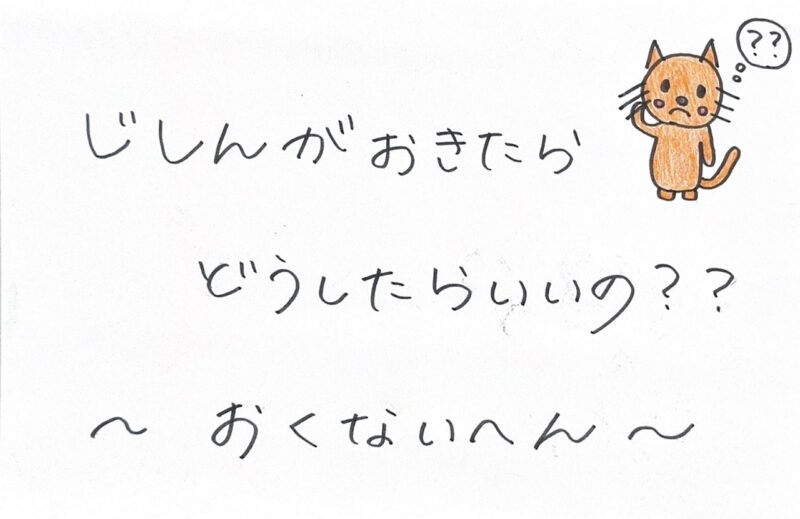 ??
じしんがおきたら
どうしたらいいの??
～ おくないへん ～